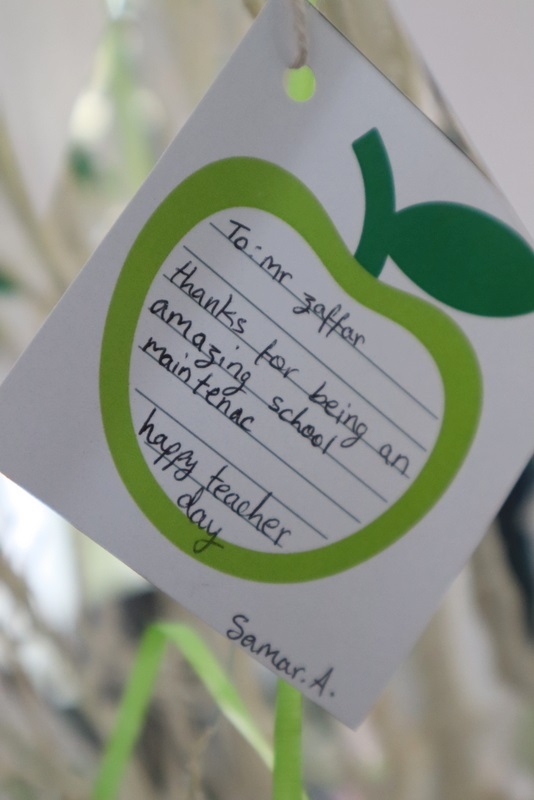 To: mr zaffar
thanks for being an
amazing school
maintenac
happy teacher
day
Samar. A.